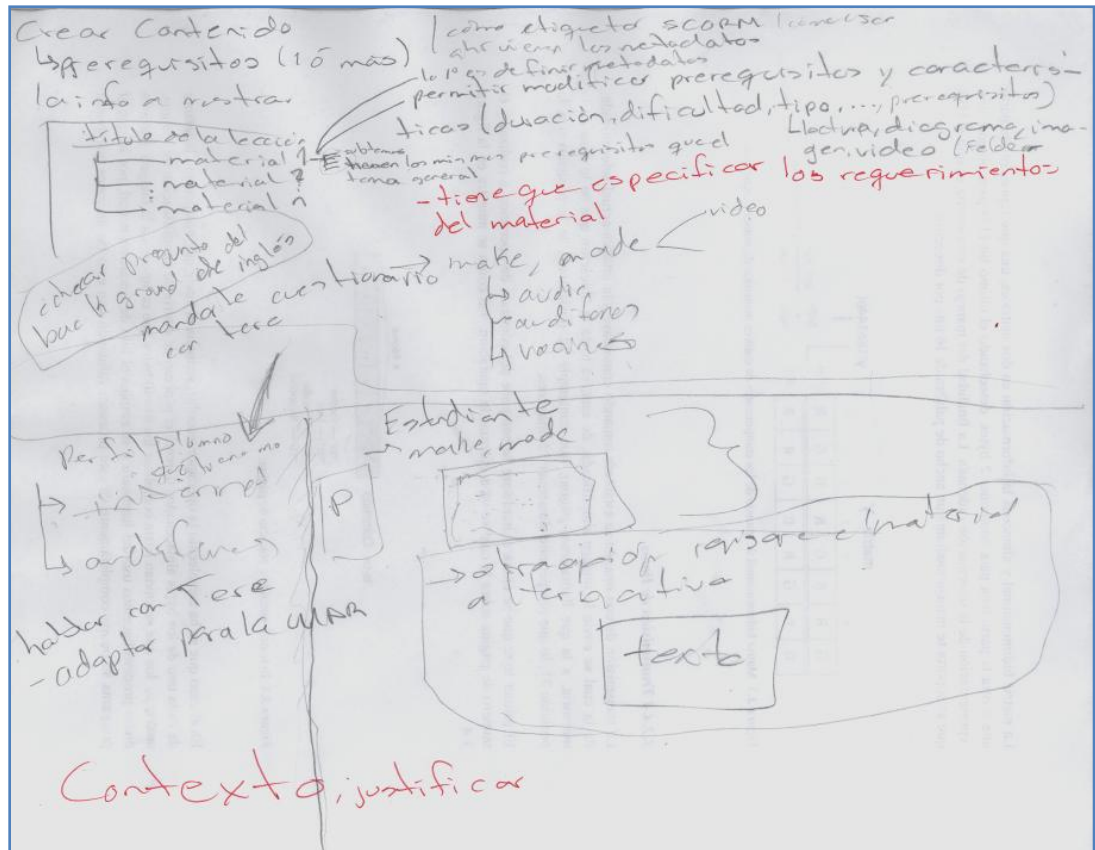 Crear Contenido
↳prerequisitos (1 ó más)
la info a mostrar
título de la lección
material 1
material 2
material n
cómo etiqueto SCORM
ahí vienen los metadatos
lo 1º es definir metadatos
permitir modificar prerequisitos y caracterís-
ticas (duración, dificultad, tipo, ..., prerequisitos)
Llectura, diagrama, ima-
gen, video (Felder
subtemas
tienen los mismos prerequisitos que el
tema general
- tiene que especificar los requerimientos
del material
checar pregunta del
background de inglés
mandarle cuestionario
con tere
make, made
video
↳ audio
audífonos
Perfil Alumno
internet
↳ audífonos
hablar con Tere
- adaptar para la UMAR
Estudiante
→ make, made
P
→ otra opción, revisar el material
alternativo
texto
Contexto, justificar